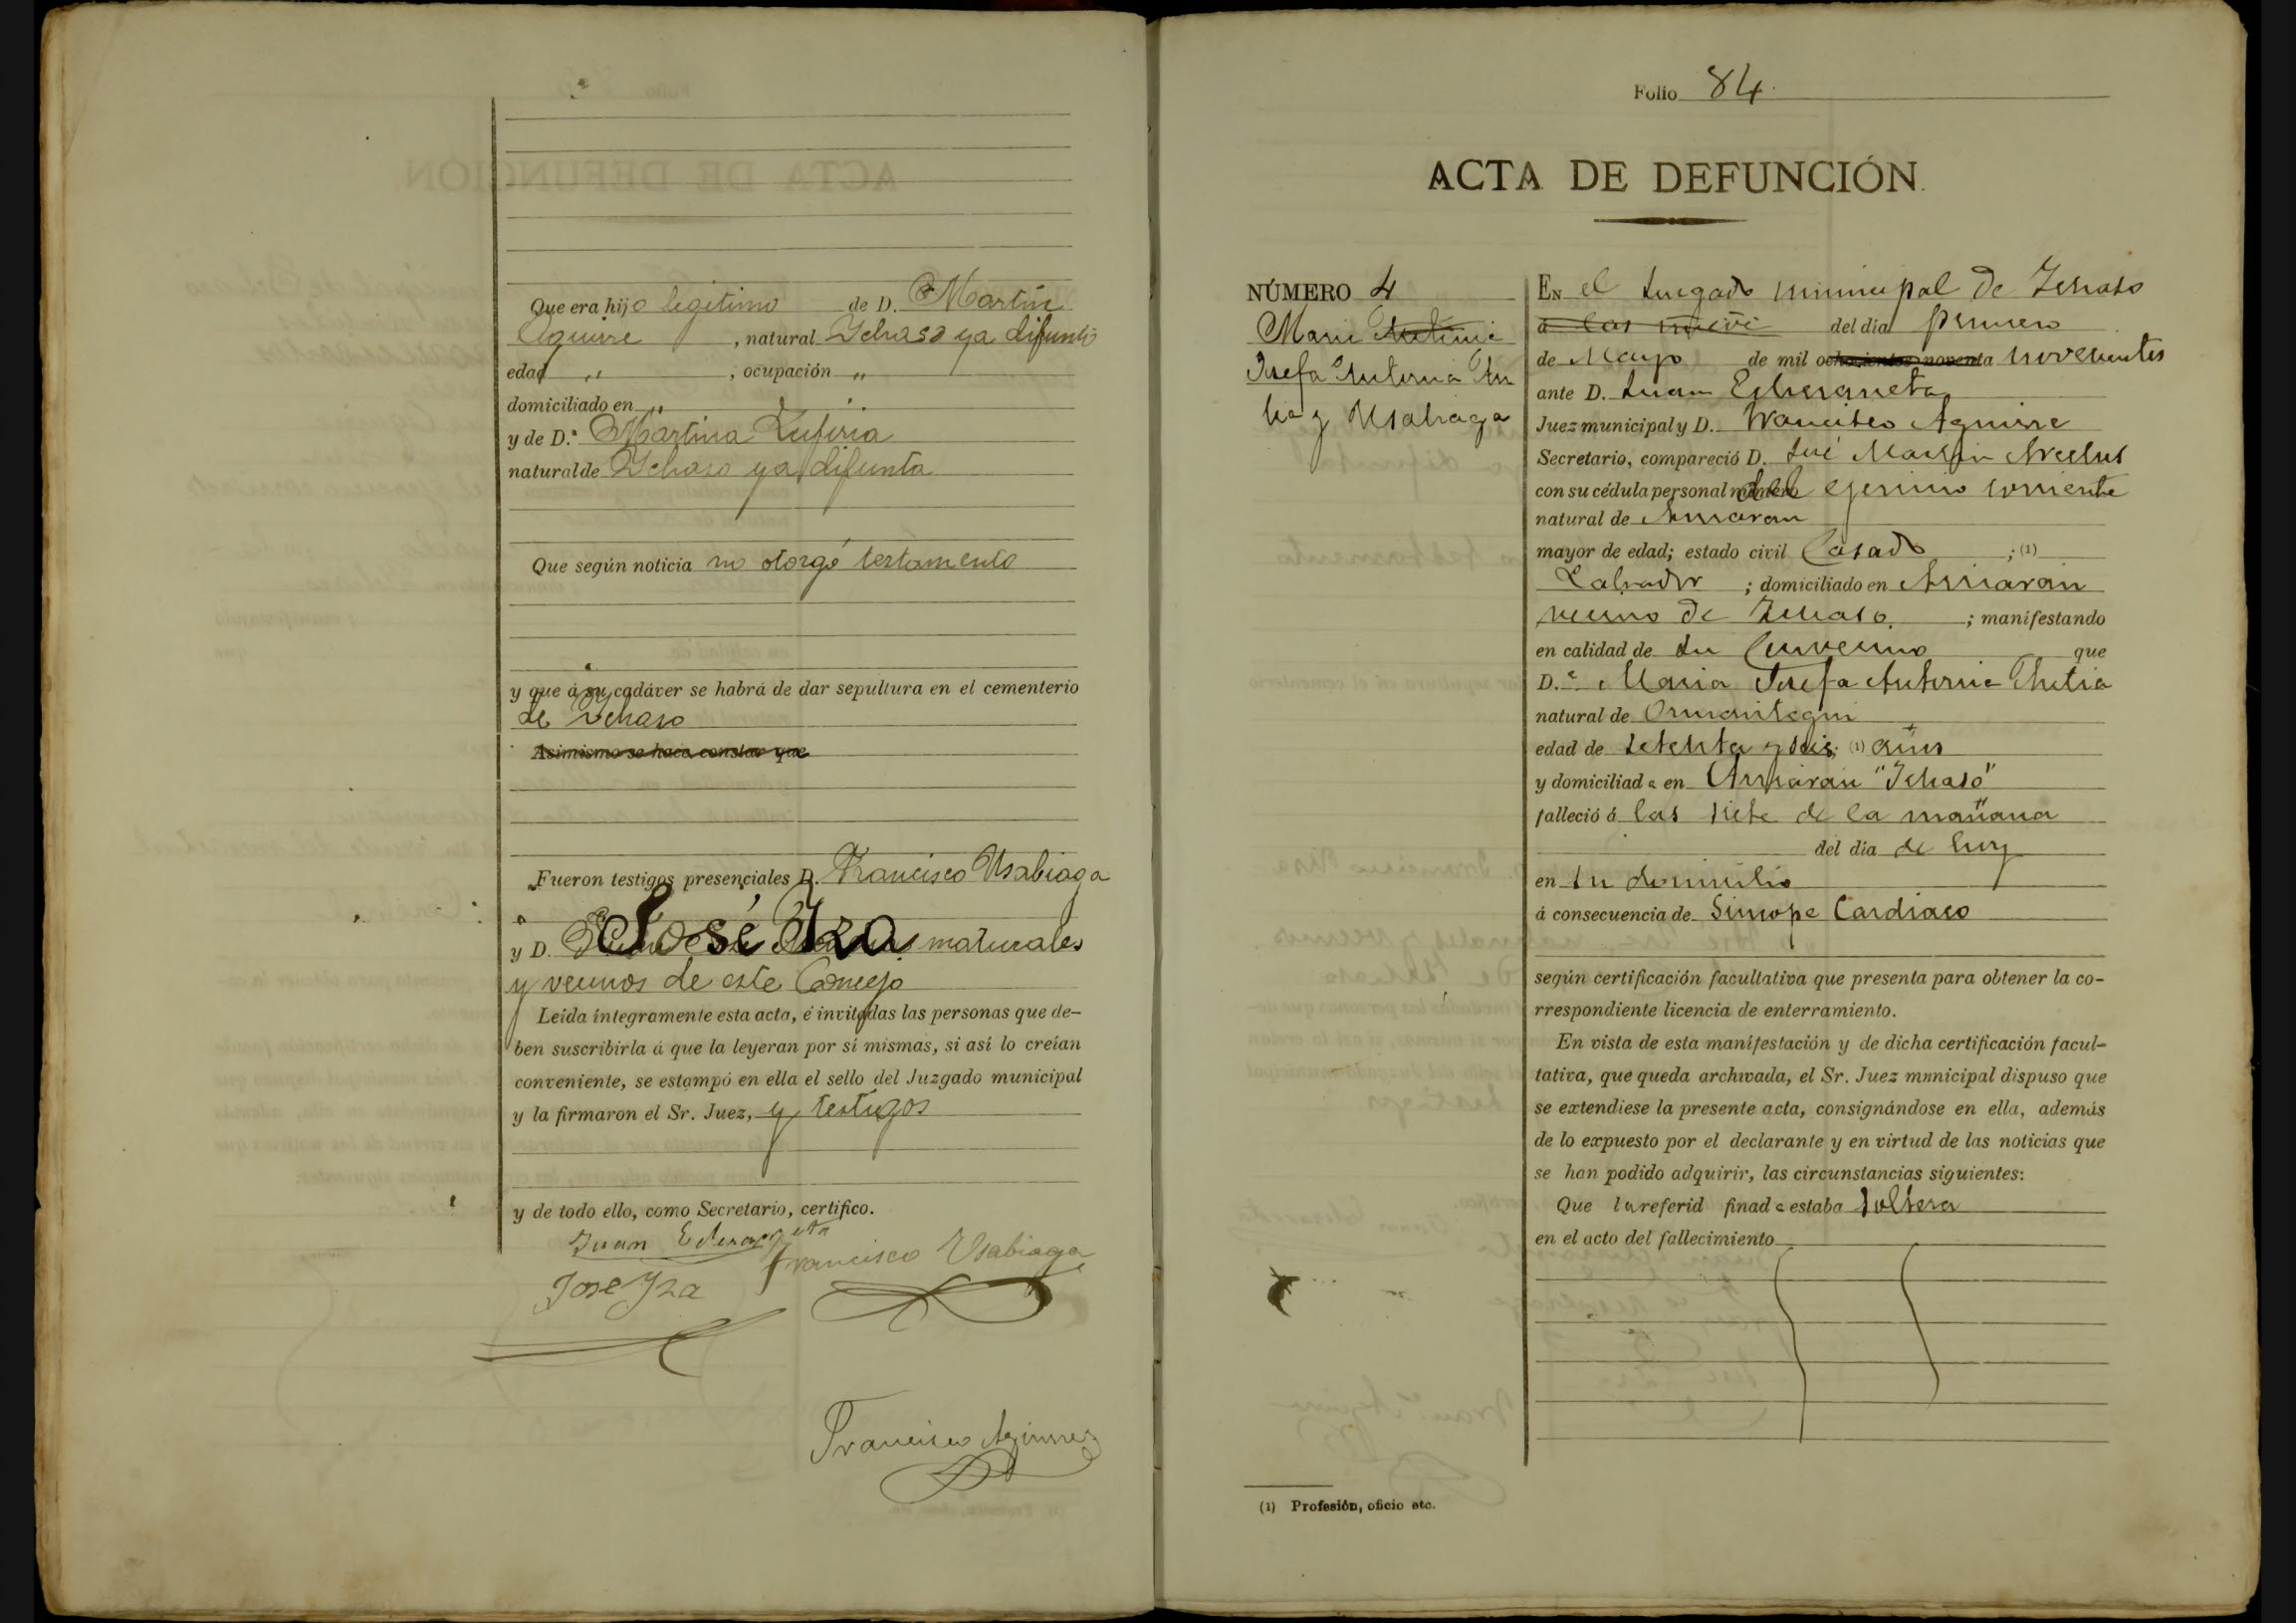 Que era hijo legitimo de D. Martin
Aguirre , natural Ychaso ya difunto
edad " ; ocupación "
domiciliado en "
y de D.ª Martina
natural de Ychaso ya difunta
Que según noticia no otorgó testamento
y que á su cadáver se habrá de dar sepultura en el cementerio
de Ychaso
Asimismo se hace constar que
Fueron testigos presenciales D. Francisco Usabiaga
y D. José Yza naturales
y vecinos de este Concejo
Leída íntegramente esta acta, é invitadas las personas que de-
ben suscribirla á que la leyeran por sí mismas, si así lo creían
conveniente, se estampó en ella el sello del Juzgado municipal
y la firmaron el Sr. Juez, y testigos
y de todo ello, como Secretario, certifico.
Juan Echezarreta
Francisco Usabiaga
Jose Yza
Francisco Aguirre
Folio 84
ACTA DE DEFUNCIÓN.
NÚMERO 4
Maria
Josefa Antonia
y Usabiaga
EN el Juzgado municipal de Ichaso
á las nueve del día primero
de Mayo de mil ochocientos noventa novecientos
ante D. Juan Echezarreta
Juez municipal y D. Francisco Aguirre
Secretario, compareció D. José Martin Arcelus
con su cédula personal número del ejercicio corriente
natural de Arriaran
mayor de edad; estado civil Casado ; (1)
Labrador ; domiciliado en Arriaran
vecino de Ichaso ; manifestando
en calidad de su Convecino que
D.ª Maria Josefa Antonia
natural de Ormaiztegui
edad de setenta y seis; (1) años
y domiciliada en Arriaran "Ichaso"
falleció á las siete de la mañana
del día de hoy
en su domicilio
á consecuencia de Sincope Cardiaco
según certificación facultativa que presenta para obtener la co-
rrespondiente licencia de enterramiento.
En vista de esta manifestación y de dicha certificación facul-
tativa, que queda archivada, el Sr. Juez municipal dispuso que
se extendiese la presente acta, consignándose en ella, además
de lo expuesto por el declarante y en virtud de las noticias que
se han podido adquirir, las circunstancias siguientes:
Que la referid finada estaba soltera
en el acto del fallecimiento
(1) Profesión, oficio etc.